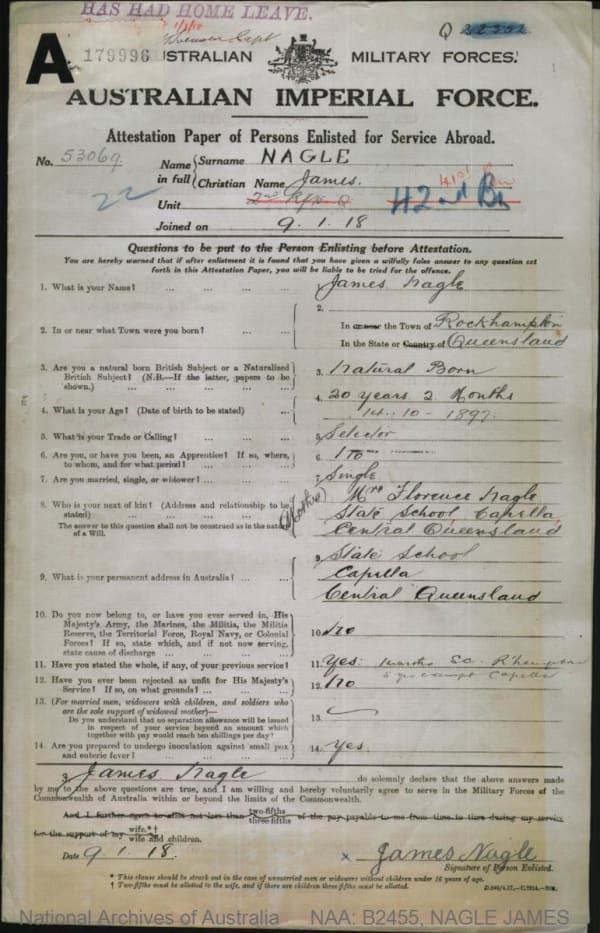 HAS HAD HOME LEAVE.
Q
A 179996 USTRALIAN MILITARY FORCES.
AUSTRALIAN IMPERIAL FORCE.
Attestation Paper of Persons Enlisted for Service Abroad.
No. 53069
Name in full { Surname NAGLE
Christian Name James.
22
Unit 42nd Bn
Joined on 9.1.18
Questions to be put to the Person Enlisting before Attestation.
You are hereby warned that if after enlistment it is found that you have given a wilfully false answer to any question set
forth in this Attestation Paper, you will be liable to be tried for the offence.
1. What is your Name? ... ... ... James Nagle
2. In or near what Town were you born? ... ... 2. In or near the Town of Rockhampton
In the State or Country of Queensland
3. Are you a natural born British Subject or a Naturalized
British Subject? (N.B.—If the latter, papers to be
shown.) ... ... ... ... 3. Natural Born
4. What is your Age? (Date of birth to be stated) ... 4. 20 years 2 Months
14.10-1897
5. What is your Trade or Calling? ... ... ... 5. Selector
6. Are you, or have you been, an Apprentice? If so, where,
to whom, and for what period? ... ... ... 6. No
7. Are you married, single, or widower? ... ... 7. Single
8. Who is your next of kin? (Address and relationship to be
stated) ... ... ... (Mother) Mrs Florence Nagle
State School Capella
Central Queensland
The answer to this question shall not be construed as in the nature
of a Will.
9. What is your permanent address in Australia? ... 9. State School
Capella
Central Queensland
10. Do you now belong to, or have you ever served in, His
Majesty's Army, the Marines, the Militia, the Militia
Reserve, the Territorial Force, Royal Navy, or Colonial
Forces? If so, state which, and if not now serving,
state cause of discharge ... ... ... 10. No
11. Have you stated the whole, if any, of your previous service? 11. Yes. Sc. R'hampton
exempt Capella
12. Have you ever been rejected as unfit for His Majesty's
Service? If so, on what grounds? ... ... 12. No
13. (For married men, widowers with children, and soldiers who
are the sole support of widowed mother)—
Do you understand that no separation allowance will be issued
in respect of your service beyond an amount which
together with pay would reach ten shillings per day? 13.
14. Are you prepared to undergo inoculation against small pox
and enteric fever? ... ... ... ... 14. Yes.
I, James Nagle do solemnly declare that the above answers made
by me to the above questions are true, and I am willing and hereby voluntarily agree to serve in the Military Forces of the
Commonwealth of Australia within or beyond the limits of the Commonwealth.
And I further agree to allot not less than two-fifths three-fifths of the pay payable to me from time to time during my service
for the support of my wife.*† wife and children.
Date 9.1.18. × James Nagle
Signature of Person Enlisted.
* This clause should be struck out in the case of unmarried men or widowers without children under 16 years of age.
† Two-fifths must be allotted to the wife, and if there are children three-fifths must be allotted.
National Archives of Australia NAA: B2455, NAGLE JAMES